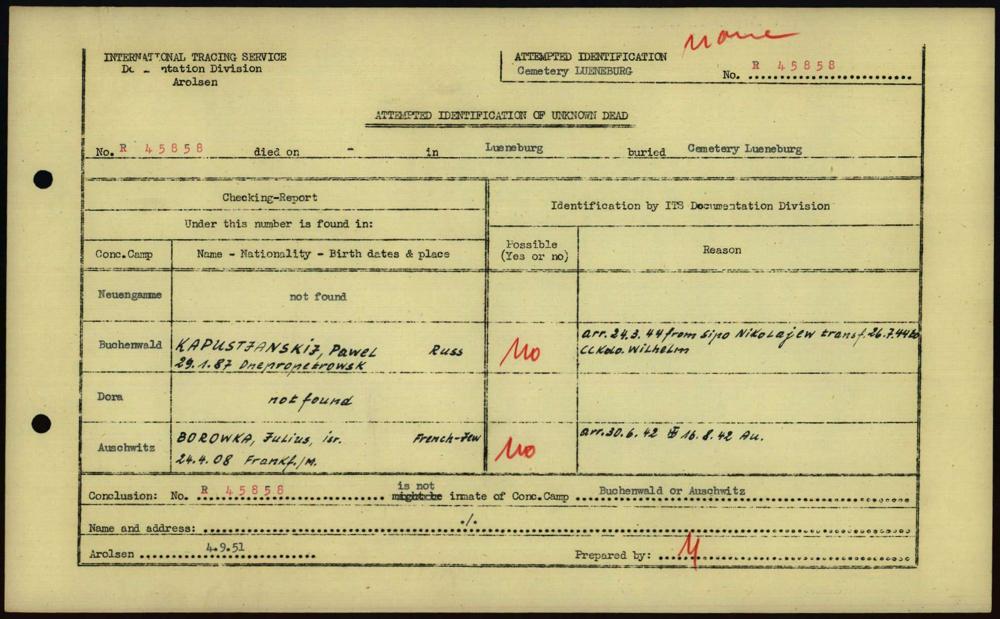 none
INTERNATIONAL TRACING SERVICE
Documentation Division
Arolsen
ATTEMPTED IDENTIFICATION
Cemetery LUENEBURG
No. R 45858
ATTEMPTED IDENTIFICATION OF UNKNOWN DEAD
No. R 45858 died on - in Lueneburg buried Cemetery Lueneburg
Checking-Report
Under this number is found in:
Identification by ITS Documentation Division
Conc.Camp Name - Nationality - Birth dates & place Possible (Yes or no) Reason
Neuengamme not found
Buchenwald KAPUSTJANSKIJ, Pawel Russ No arr. 24.3.44 from Sipo Nikolajew transf. 26.7.44 to
29.1.87 Dnepropetrowsk CC Kdo. Wilhelm
Dora not found
Auschwitz BOROWKA, Julius, isr. French-Jew No arr. 30.6.42 16.8.42 Au.
24.4.08 Frankf./M.
Conclusion: No. R 45858 is not might be inmate of Conc.Camp Buchenwald or Auschwitz
Name and address: ./.
Arolsen 4.9.51 Prepared by: